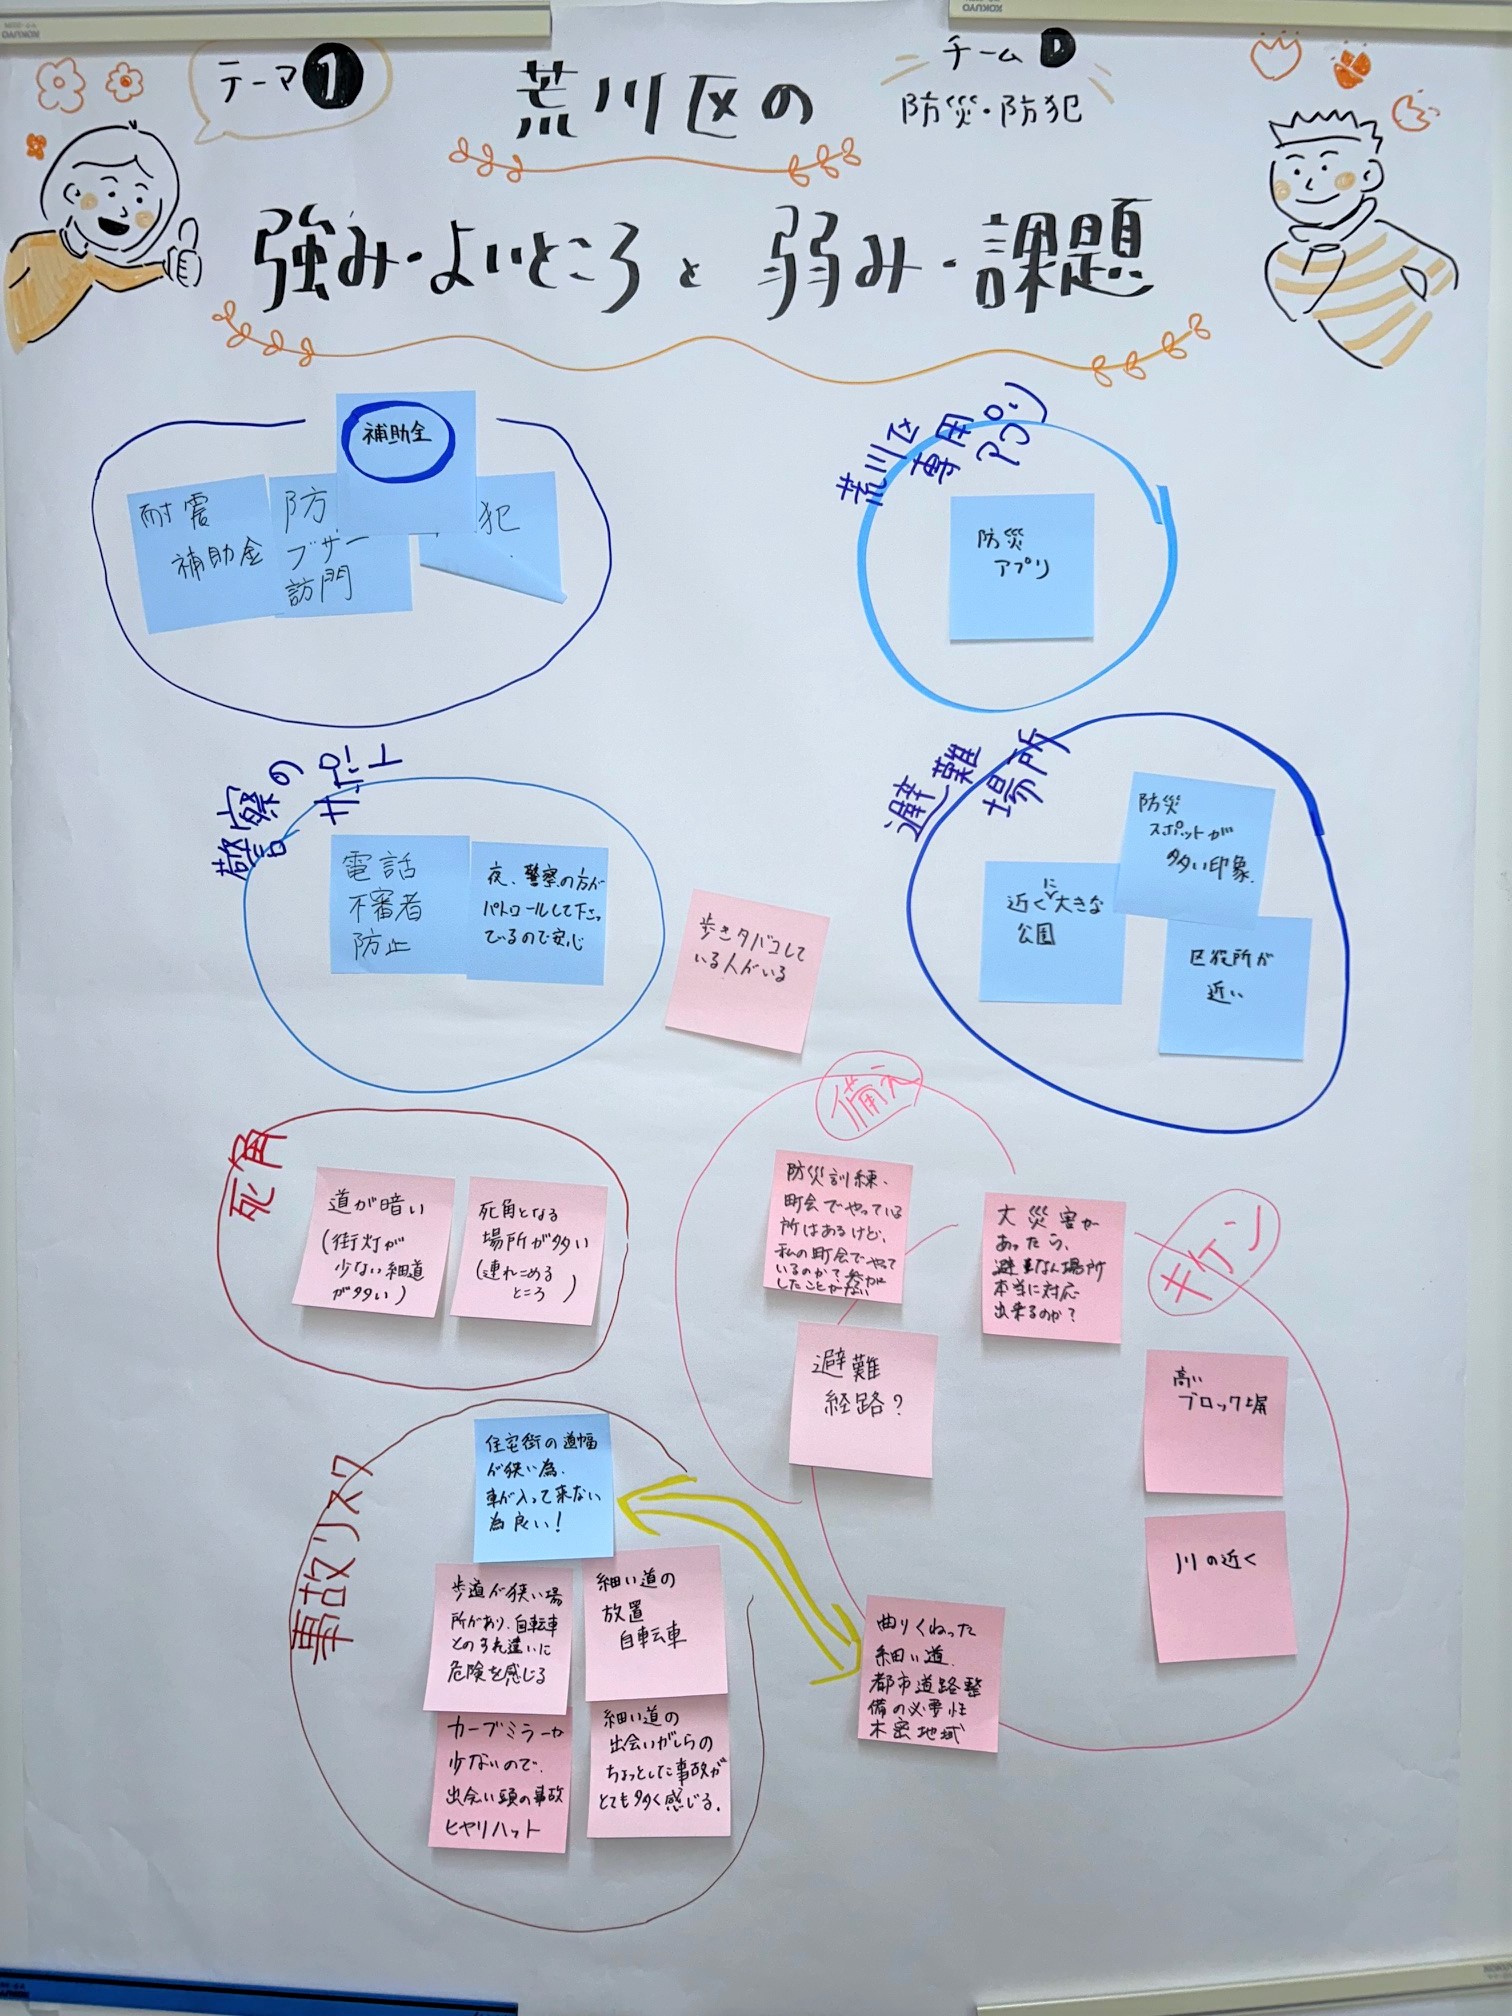 テーマ1
荒川区の
チームD
防災・防犯
強み・よいところと弱み・課題
補助金
耐震
補助金
防
ブザー
訪問
犯
荒川区
専用
アプリ
防災
アプリ
警察の
サポート
電話
不審者
防止
夜、警察の方が
パトロールして下さっ
ているので安心
避難
場所
防災
スポットが
多い印象
近くに大きな
公園
区役所が
近い
歩きタバコして
いる人がいる
死角
道が暗い
(街灯が
少ない細道
が多い)
死角となる
場所が多い
(連れこめる
ところ)
備え
防災訓練、
町会でやっている
所はあるけど、
私の町会でやって
いるのか?参加
したことがない
避難
経路?
キケン
大災害が
あったら、
避難場所
本当に対応
出来るのか?
高い
ブロック塀
川の近く
曲りくねった
細い道
都市道路整
備の必要性
木密地域
事故リスク
住宅街の道幅
が狭い為、
車が入って来ない
為良い!
歩道が狭い場
所があり、自転車
とのすれ違いに
危険を感じる
細い道の
放置
自転車
カーブミラーが
少ないので、
出会い頭の事故
ヒヤリハット
細い道の
出会いがしらの
ちょっとした事故が
とても多く感じる。
KOKUYO
KOKUYO